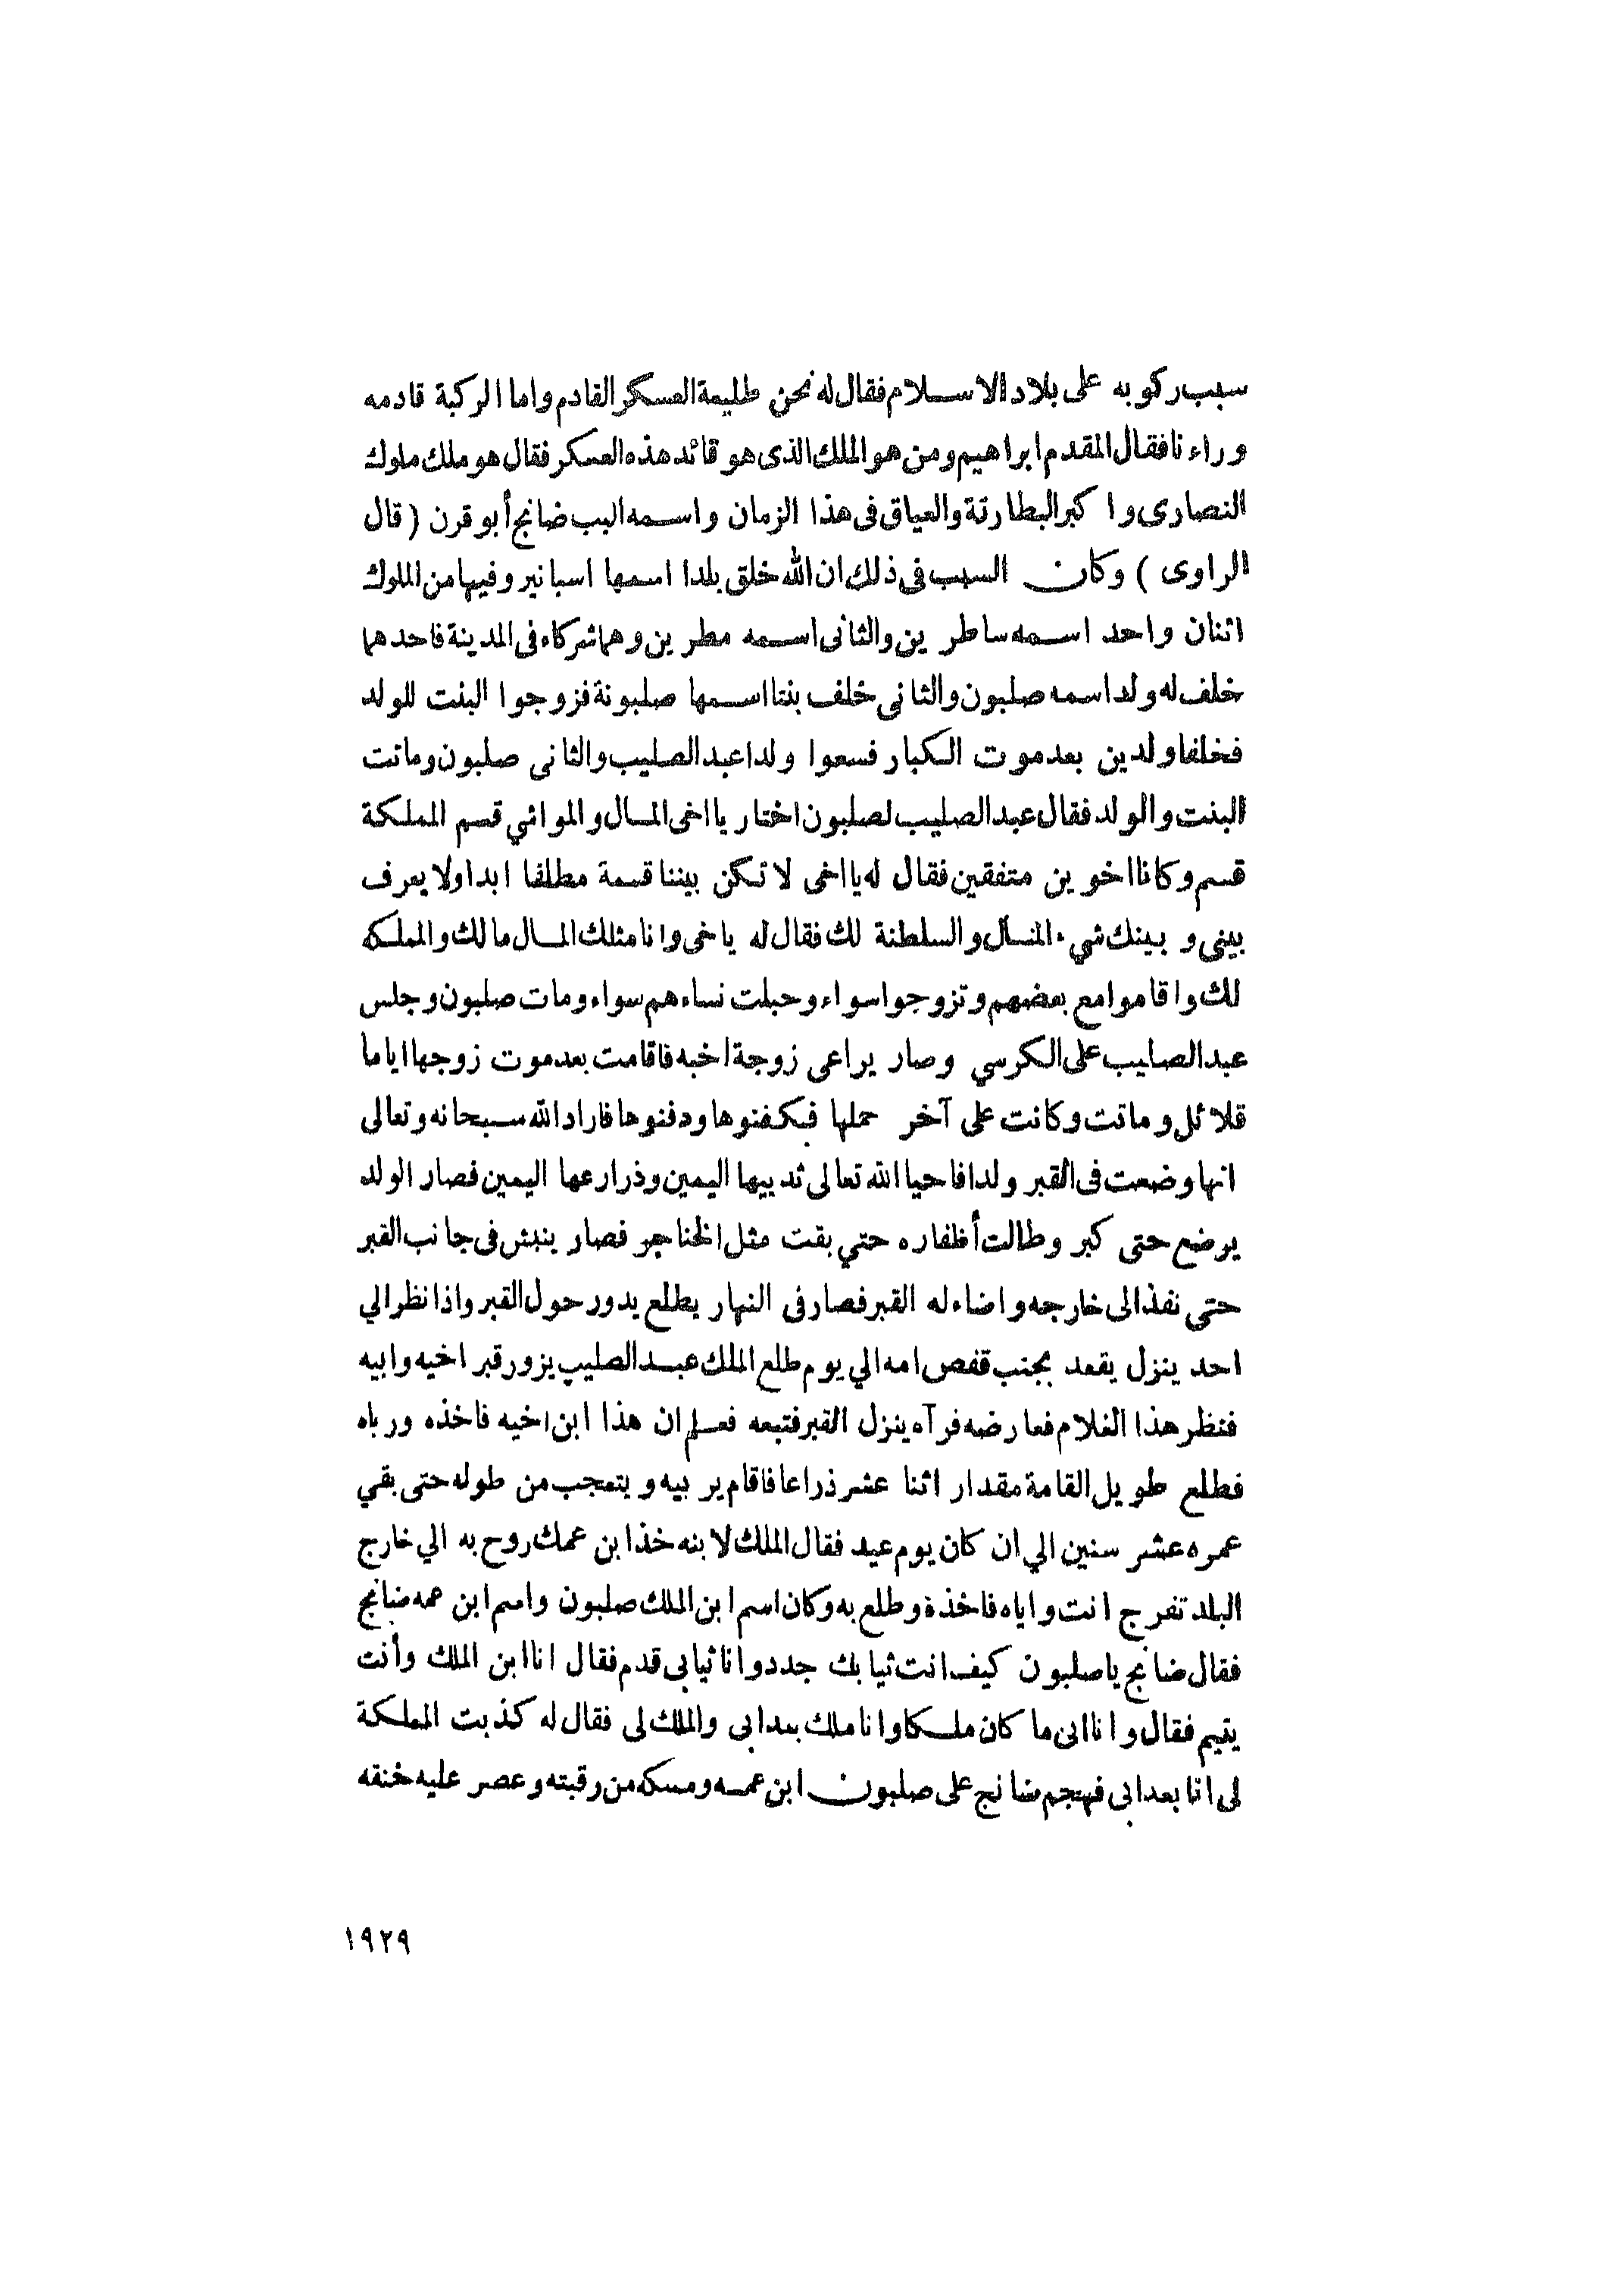 سبب ركوبه على بلاد الاسلام فقال له نحن طليعة العسكر القادم واما الركبة قادمه
وراءنا فقال المقدم ابراهيم ومن هو الملك الذى هو قائد هذه العسكر فقال هو ملك ملوك
النصارى واكبر البطارقة والعياق فى هذا الزمان واسمه البب ضانج أبو قرن ( قال
الراوى ) وكان السبب فى ذلك ان الله خلق بلدا اسمها اسبانير وفيها من الملوك
اثنان واحد اسمه ساطرين والثانى اسمه مطرين وهما شركاء فى المدينة فاحدهما
خلف له ولد اسمه صلبون والثانى خلف بنتا اسمها صلبونة فزوجوا البنت للولد
فخلفا ولدين بعد موت الكبار فسعوا ولدا عبد الصليب والثانى صلبون وماتت
البنت والولد فقال عبد الصليب لصلبون اختار يا اخى المال والمواشي قسم المملكة
قسم وكانا اخوين متفقين فقال له يا اخى لا تكن بيننا قسمة مطلقا ابدا ولا يعرف
بينى وبينك شيء المال والسلطنة لك فقال له ياخى وانا مثلك المال مالك والمملكه
لك واقاموا مع بعضهم وتزوجوا سواء وحبلت نساءهم سواء ومات صلبون وجلس
عبد الصليب على الكرسي وصار يراعى زوجة اخيه فاقامت بعد موت زوجها اياما
قلائل وماتت وكانت على آخر حملها فكفنوها ودفنوها فاراد الله سبحانه وتعالى
انها وضعت فى القبر ولدا فاحيا الله تعالى ثدييها اليمين وذرارعها اليمين فصار الولد
يرضع حتى كبر وطالت أظفاره حتي بقت مثل الخناجر فصار ينبش فى جانب القبر
حتى نفذ الى خارجه واضاء له القبر فصار فى النهار يطلع يدور حول القبر واذا نظر الي
احد ينزل يقعد بجنب قفص امه الي يوم طلع الملك عبد الصليب يزور قبر اخيه وابيه
فنظر هذا الغلام فعارضه فرآه ينزل القبر فتبعه فعلم ان هذا ابن اخيه فاخذه ورباه
فطلع طويل القامة مقدار اثنا عشر ذراعا فاقام يربيه ويتعجب من طوله حتى بقي
عمره عشر سنين الي ان كان يوم عيد فقال الملك لابنه خذ ابن عمك روح به الي خارج
البلد تفرج انت واياه فاخذة وطلع به وكان اسم ابن الملك صلبون واسم ابن عمه ضانج
فقال ضانج يا صلبون كيف انت ثيابك جدد وانا ثيابى قدم فقال انا ابن الملك وأنت
يتيم فقال وانا ابى ما كان ملكا وانا ملك بعد ابى والملك لى فقال له كذبت المملكة
لى انا بعد ابى فهتجم ضانج على صلبون ابن عمه ومسكه من رقبته وعصر عليه خنقه
١٩٢٩